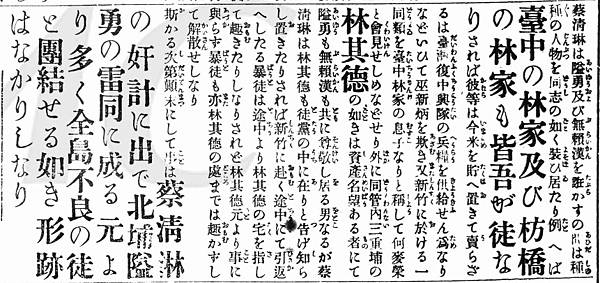 蔡清琳は隘勇及び無頼漢を誑かすの具は種
種の人物を同志の如く装ひ居たり例へば
臺中の林家及び枋橋
の林家も皆吾が徒な
りされば彼等は今米を貯へ置きて賣らざ
るは臺灣復中興隊の兵糧を供給せん爲なり
などいひて巫新炳を欺き又新竹に於ける一
同類を臺中林家の息子なりと稱して何麥榮
と會見せしめなどせり外に同管內三重埔の
林其德の如きは資產名望ある者にて
隘勇も無頼漢も共に尊敬し居る男なるが蔡
淸琳は林其德も徒黨の中に在りと告げ知ら
し置きたりされば新竹に赴く途中にて引返
へしたる暴徒は途中より林其德の宅を指し
て趣きたりしなりされど林其德元より事に
與らず暴徒も亦林其德の處までは趣かずし
て解散せしなり
斯かる次第顚末にして事は蔡淸琳
の奸計に出で北埔隘
勇の雷同に成る元よ
り多く全島不良の徒
と團結せる如き形跡
はなかりしなり